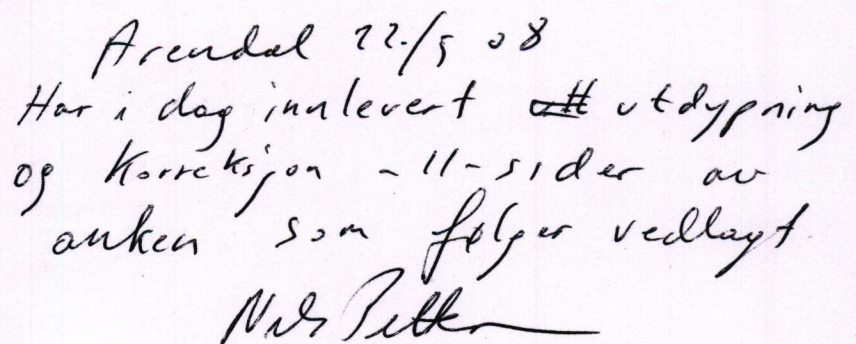 Arendal 22./5 08
Har i dag innlevert utdypning
og Korreksjon - 11-sider av
anken som følger vedlagt
Nils Petter